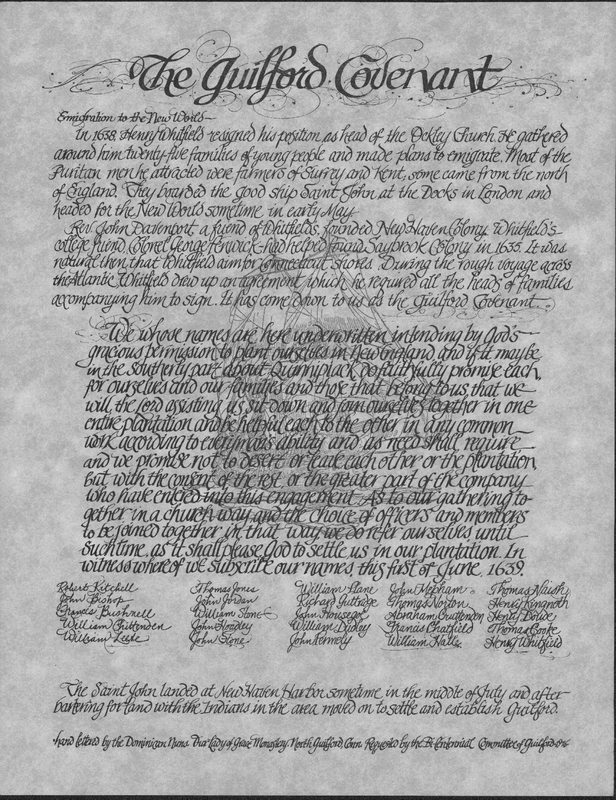 The Guilford Covenant
Emigration to the New World—
In 1638, Henry Whitfield resigned his position as head of the Ockley Church. He gathered
around him twenty-five families of young people and made plans to emigrate. Most of the
Puritan men he attracted were farmers of Surrey and Kent, some came from the north
of England. They boarded the good ship Saint John at the Docks in London and
headed for the New World sometime in early May.
Rev. John Davenport, a friend of Whitfields, founded New Haven Colony. Whitfield's
college friend, Colonel George Fenwick—had helped found Saybrook Colony in 1635. It was
natural then that Whitfield aim for Connecticut shores. During the rough voyage across
the Atlantic Whitfield drew up an agreement, which he required all the heads of families
accompanying him to sign. It has come down to us as the Guilford Covenant.
We whose names are here underwritten intending by God's
gracious permission to plant ourselves in New England and if it may be
in the southerly part about Quinnipiack, do faithfully promise each,
for ourselves and our families and those that belong to us, that we
will, the Lord assisting us, sit down and join ourselves together in one
entire plantation and be helpful each to the other in any common
work according to every man's ability and as need shall require
and we promise not to desert or leave each other or the plantation,
but with the consent of the rest, or the greater part of the company
who have entered into this engagement. As to our gathering to-
gether in a church way and the choice of officers and members
to be joined together in that way, we do refer ourselves until
such time, as it shall please God to settle us in our plantation. In
witness whereof we subscribe our names this first of June, 1639
Robert Kitchell Thomas Jones William Plane John Mepham Thomas Naish
John Bishop John Jordan Richard Guttridge Thomas Norton Henry Kingnoth
Francis Bushnell William Stone John Housegoe Abraham Cruttenden Henry Dowde
William Chittenden John Hoadley William Dudley Francis Chatfield Thomas Cooke
William Leete John Stone John Permely William Halle Henry Whitfield
The Saint John landed at New Haven Harbor sometime in the middle of July and after
bartering for land with the Indians in the area moved on to settle and establish Guilford.
hand lettered by the Dominican Nuns Our Lady of Grace Monastery North Guilford, Conn. Requested by the Bi-Centennial Committee of Guilford